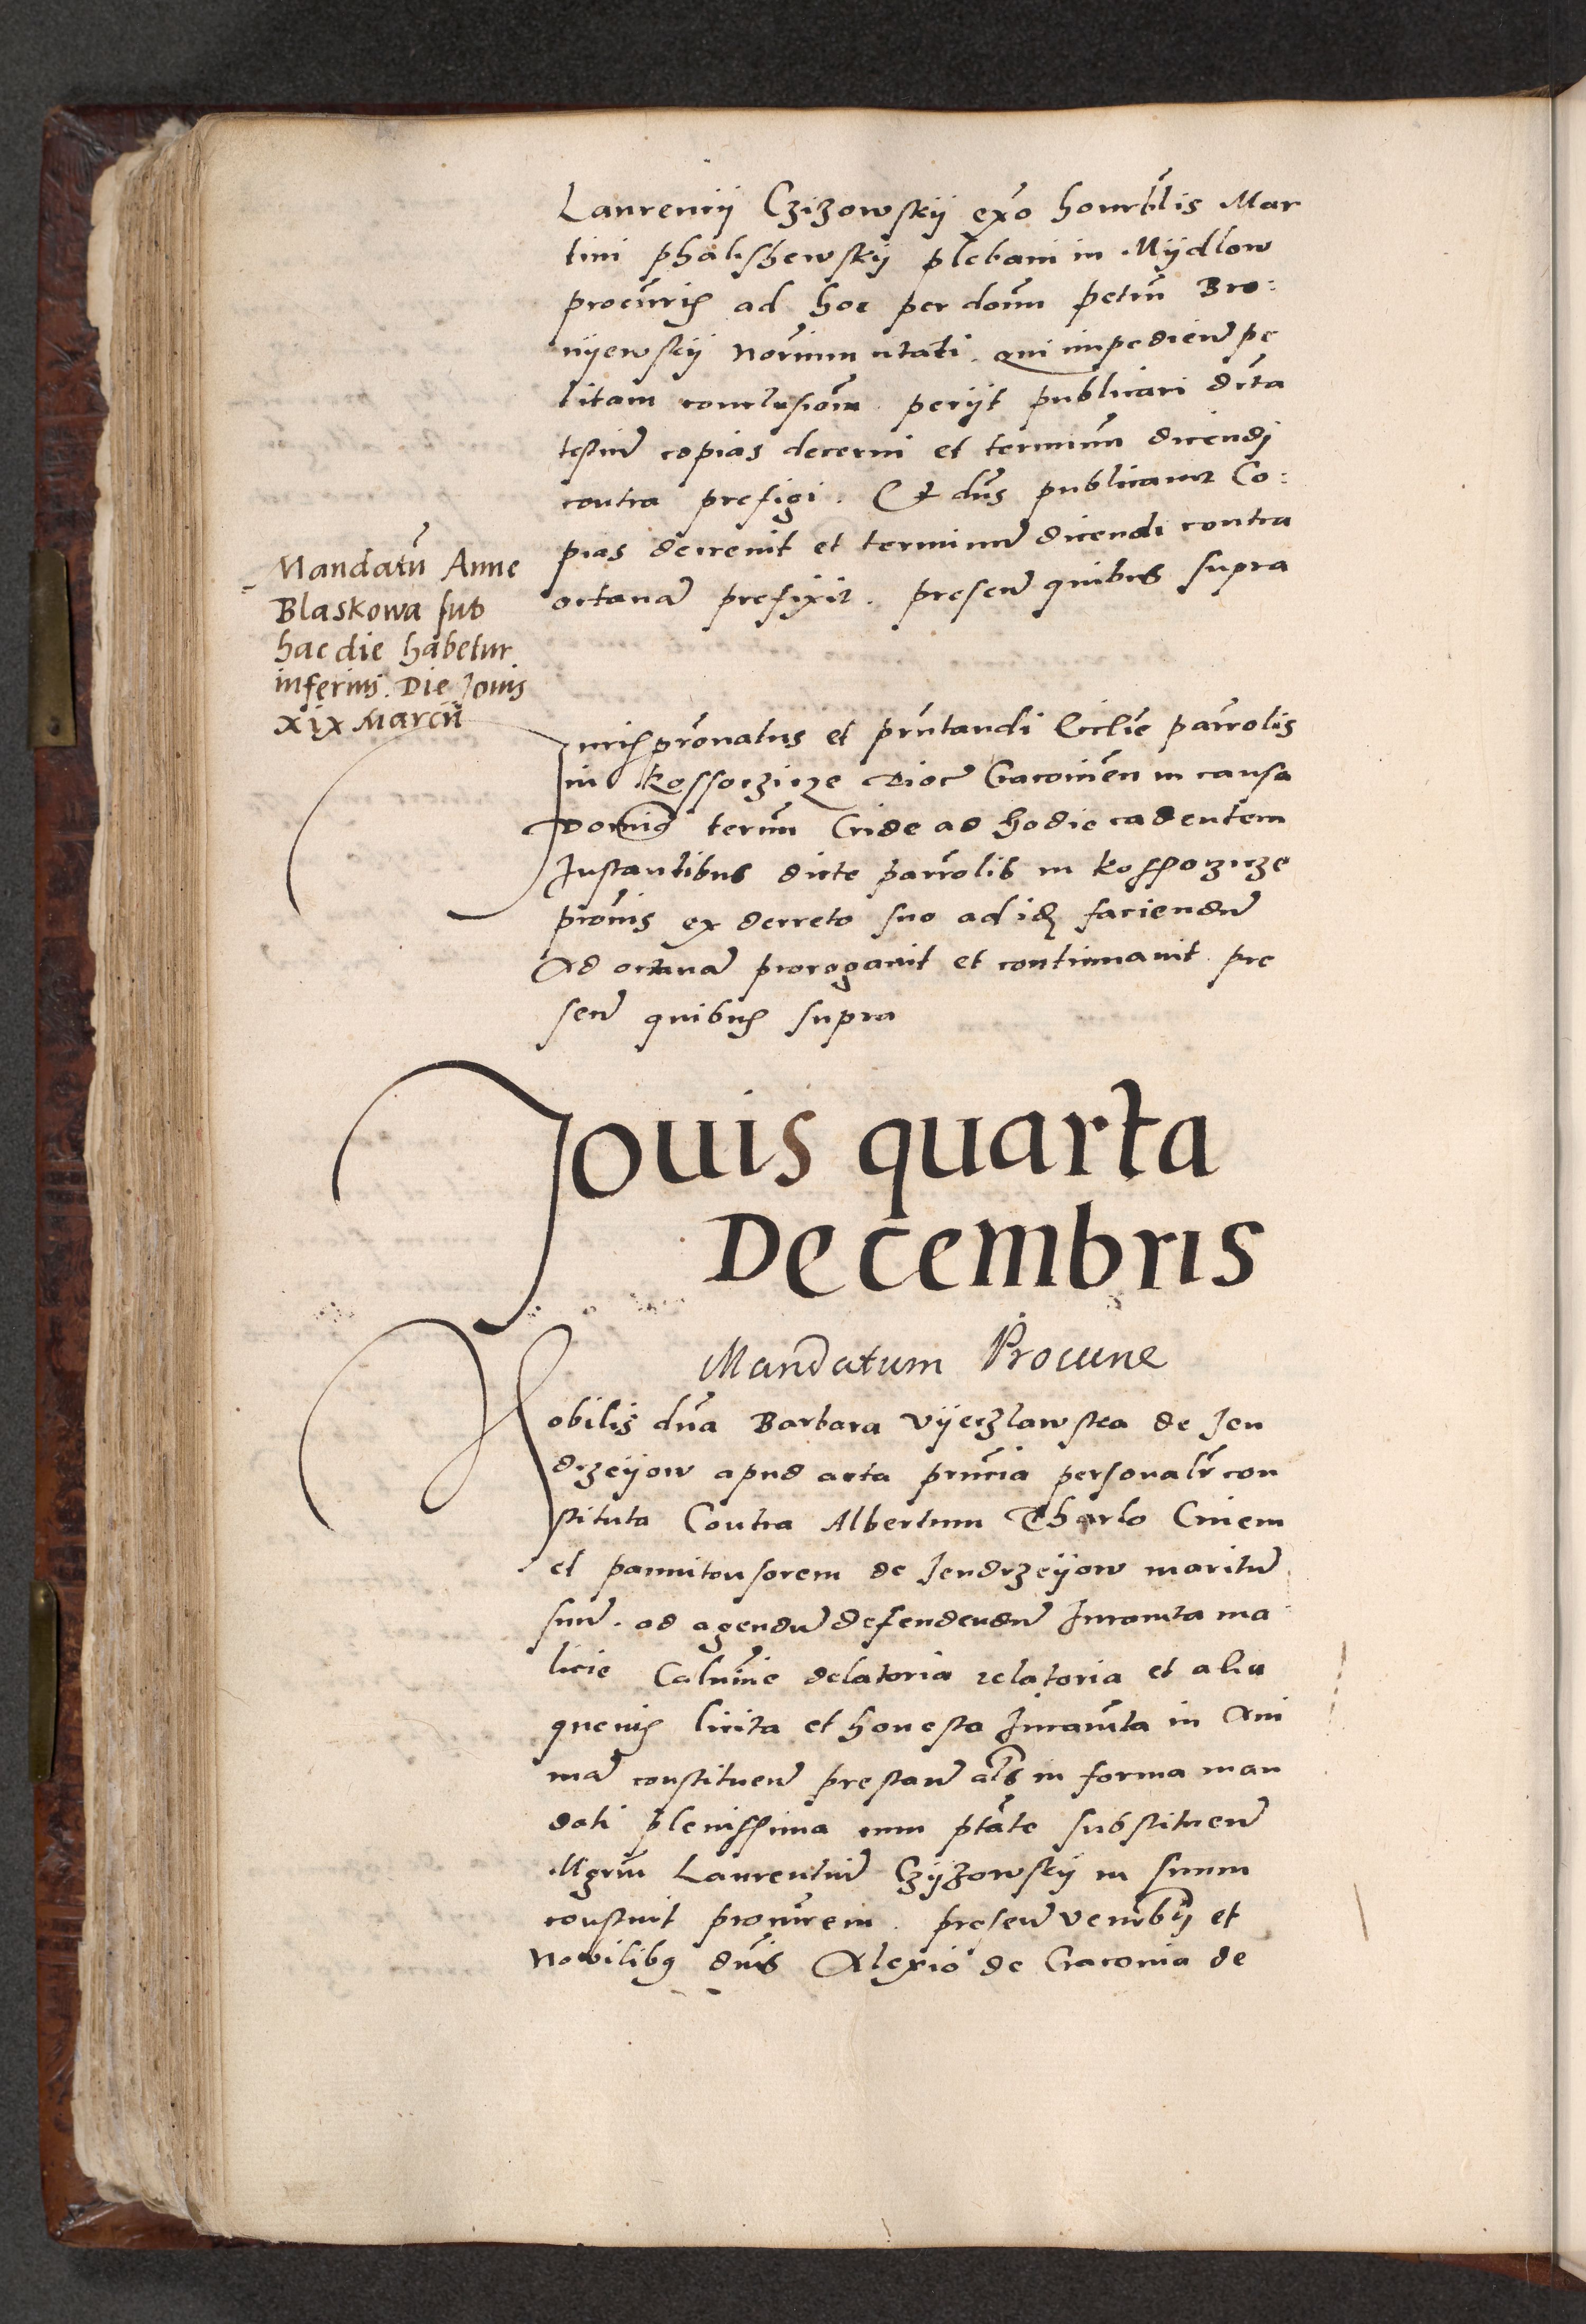 Laurencij Czizowskij exo honrblis Mar
tini phalishewskij plebani in Mijdlow
procuris ad hoc per donu petru Bro:
nijewskij Norium citati. qui impedien pe
titam conclusiom. petijt publicari dicta
testiu copias decerni et terminu dicendi
contra prefigi. Et dns publicavit Co:
pias decrevit et terminu dicendi contra
octava prefixit. presen quibus supra
Mandatu Anne
Blaskowa sub
hac die habetur
inferius. Die Jovis
xix Marcii
Juris pronatus et pntandi Ecclie parrolis
in kossorzicze Dioc Cracovien in causa
terum Cride ad hodie cadentem
Instantibus dicte parrolis in kossorzicze
provis ex decreto suo ad id faciendu
Ad octava prorogavit et continuavit. pre
sen quibus supra
Jouis quarta
Decembris
Mandatum Procune
Nobilis dna Barbara Vijerzlawska de Jen
drzeijow apud acta prncia personalr con
stituta Contra Albertum Tharlo Civem
et pannitonsorem de Jendrzeijow maritu
suu. ad agendu defendendu Juramta ma
licie Calumie delatoria relatoria et alia
quevis licita et honesta Juramta in Ani
ma constituen prestan als in forma man
dati plenissima cum ptate substituen
Mgrm Laurentiu Czijzowskij in suum
constuit procurem. presen venrbli et
Nobilibus dnis Alexio de Cracovia de